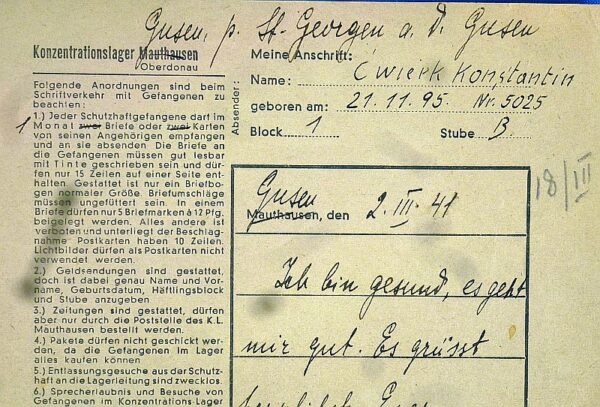 Gusen, p. St. Georgen a. d. Gusen
Konzentrationslager Mauthausen
Oberdonau
Folgende Anordnungen sind beim
Schriftverkehr mit Gefangenen zu
beachten:
1 1.) Jeder Schutzhaftgefangene darf im
Monat zwei Briefe oder zwei Karten
von seinen Angehörigen empfangen
und an sie absenden. Die Briefe an
die Gefangenen müssen gut lesbar
mit Tinte geschrieben sein und dür-
fen nur 15 Zeilen auf einer Seite ent-
halten. Gestattet ist nur ein Briefbo-
gen normaler Größe. Briefumschläge
müssen ungefüttert sein. In einem
Briefe dürfen nur 5 Briefmarken à 12 Pfg.
beigelegt werden. Alles andere ist
verboten und unterliegt der Beschlag-
nahme. Postkarten haben 10 Zeilen.
Lichtbilder dürfen als Postkarten nicht
verwendet werden.
2.) Geldsendungen sind gestattet,
doch ist dabei genau Name und Vor-
name, Geburtsdatum, Häftlingsblock
und Stube anzugeben
3.) Zeitungen sind gestattet, dürfen
aber nur durch die Poststelle des K.L.
Mauthausen bestellt werden.
4.) Pakete dürfen nicht geschickt wer-
den, da die Gefangenen im Lager
alles kaufen können
5.) Entlassungsgesuche aus der Schutz-
haft an die Lagerleitung sind zwecklos.
6.) Sprecherlaubnis und Besuche von
Gefangenen im Konzentrations-Lager
Absender:
Meine Anschrift:
Name: Ćwierk Konstantin
geboren am: 21.11.95. Nr. 5025
Block 1 Stube B.
18/III
Gusen
Mauthausen, den 2. III. 41
Ich bin gesund, es geht
mir gut. Es grüsst
herzlich Euer